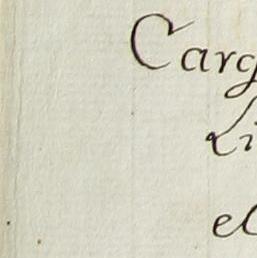 Carg
Li
el